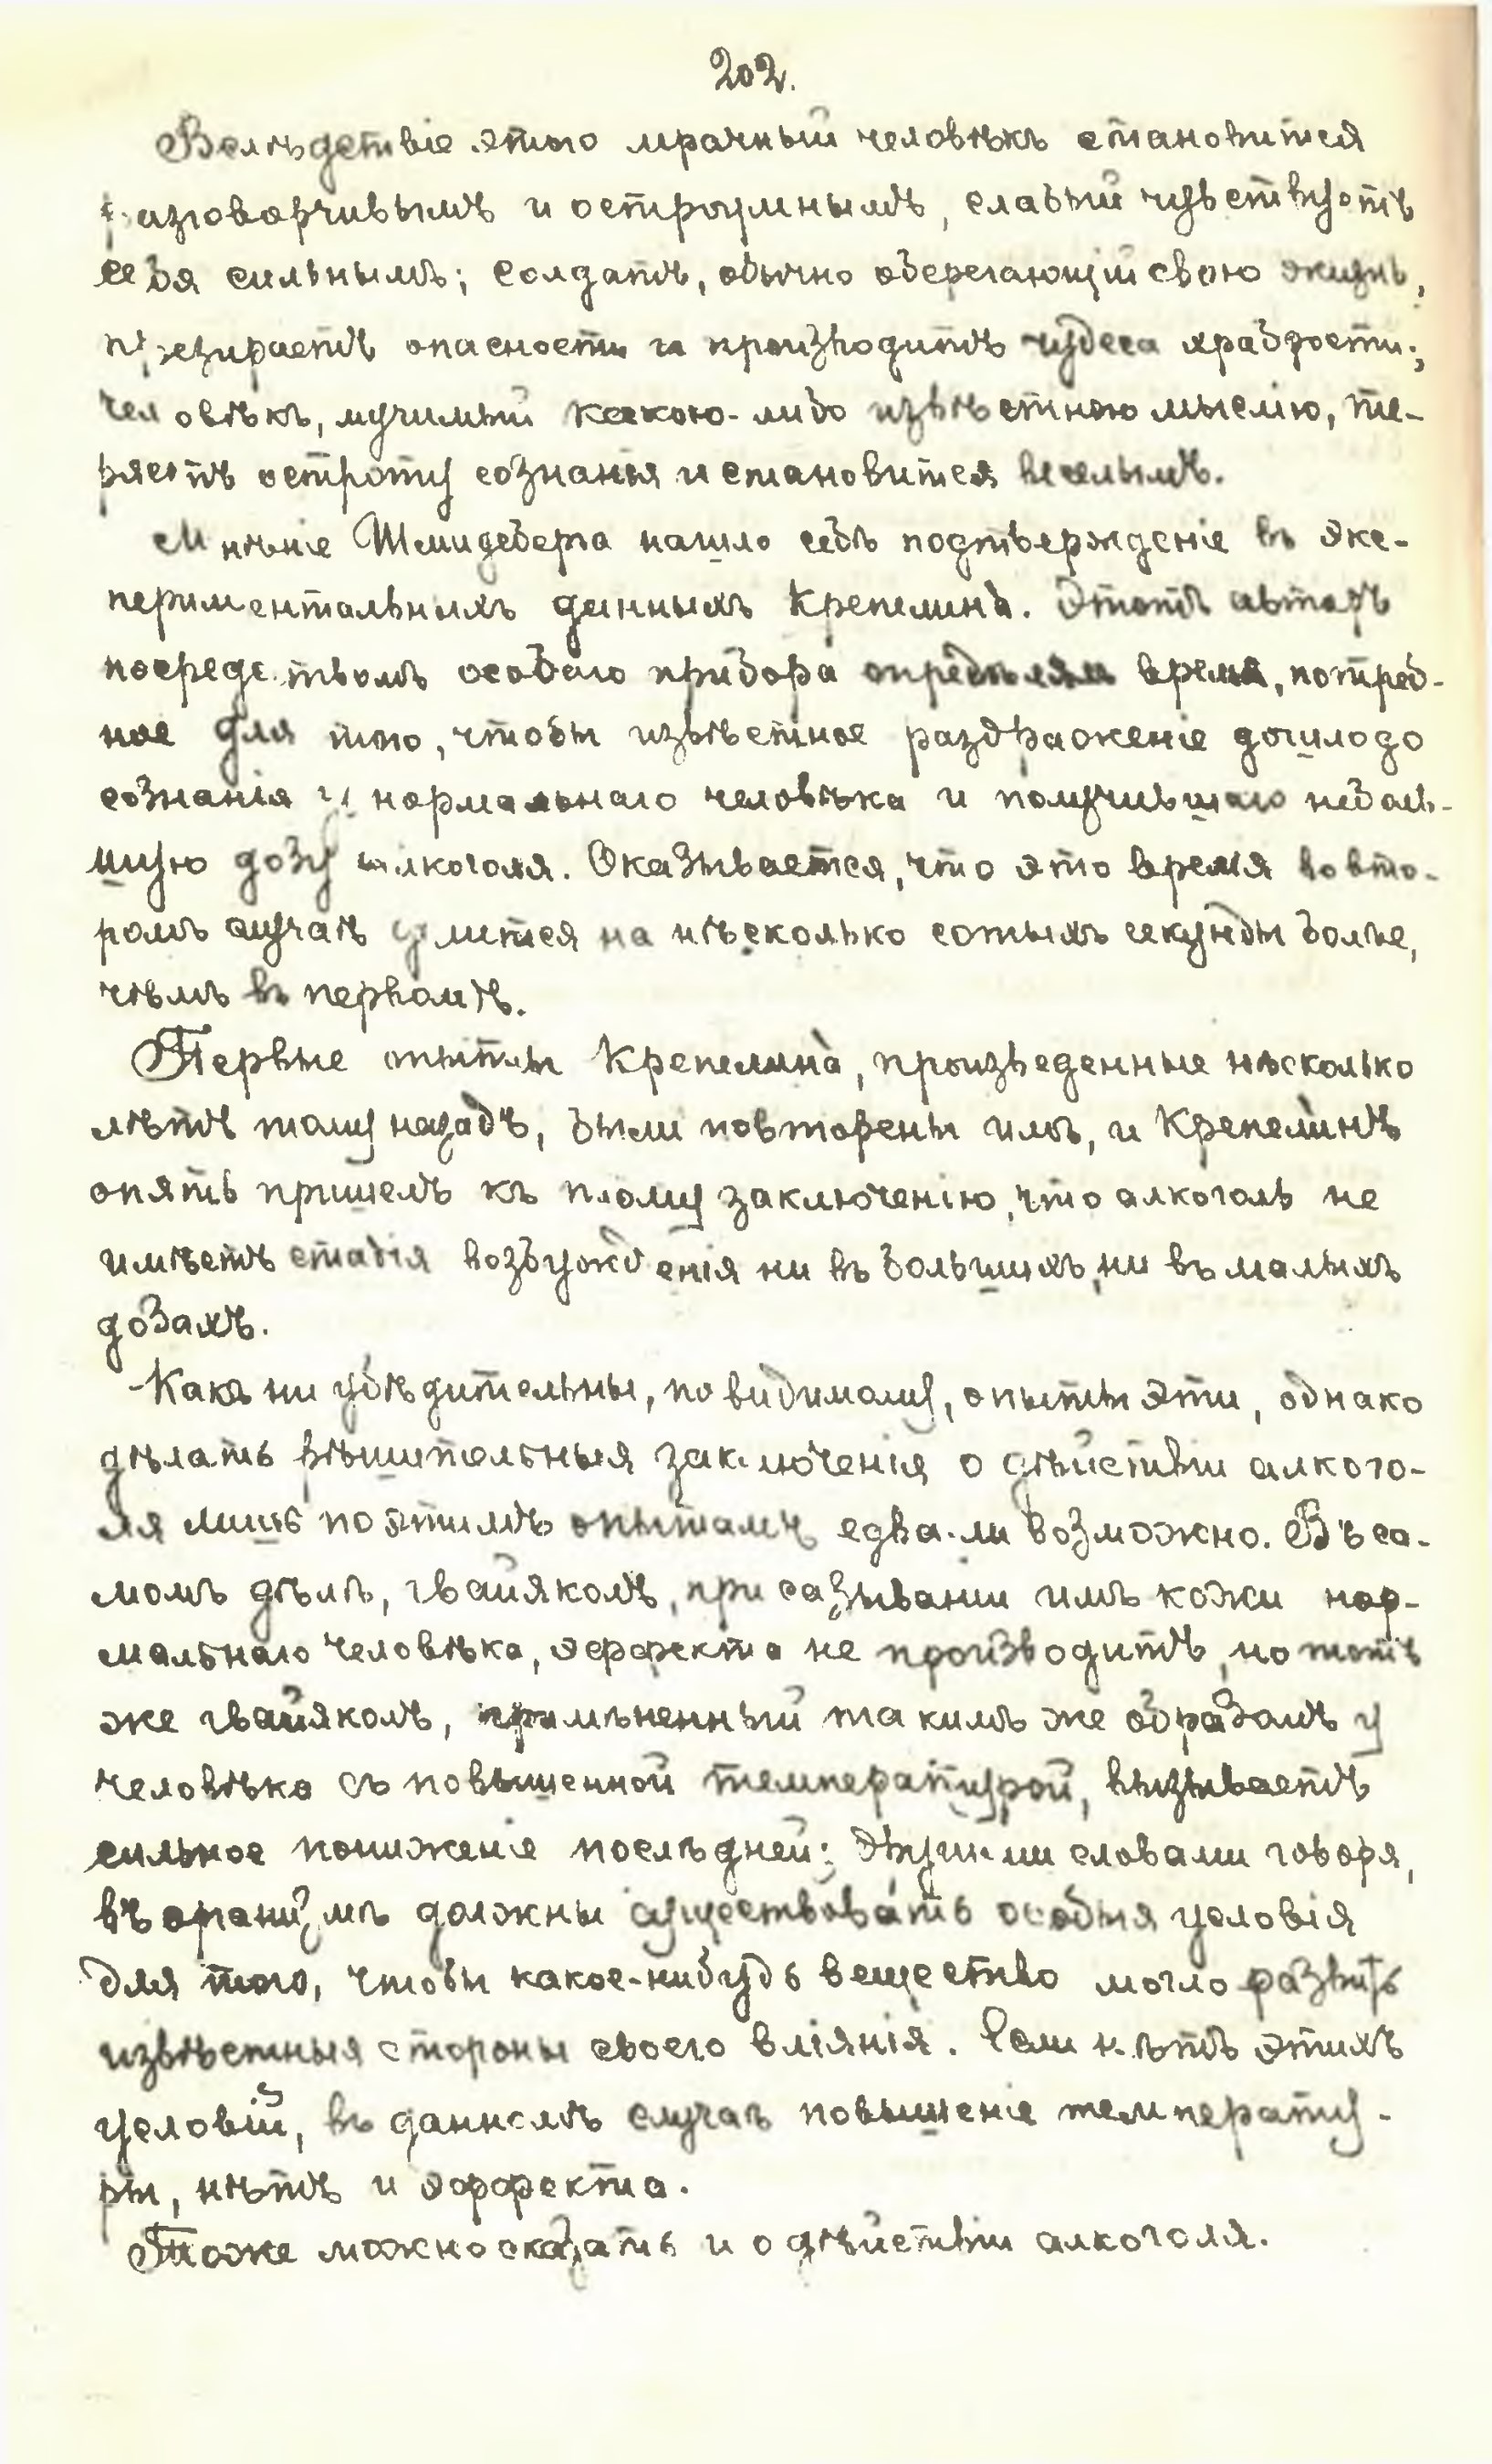 202.
Вслѣдствіе этого мрачный человѣкъ становится
разговорчивымъ и остроумнымъ, слабый чувствуетъ
себя сильнымъ; солдатъ, обычно оберегающій свою жизнь,
презираетъ опасности и производитъ чудеса храбрости;
человѣкъ, мучимый какою-либо извѣстною мыслію, те-
ряетъ остроту сознанія и становится веселымъ.
Мнѣніе Шмидеберга нашло себѣ подтвержденіе въ экс-
периментальныхъ данныхъ Крепелина. Этотъ авторъ
посредствомъ особаго прибора опредѣлялъ время, потреб-
ное для того, чтобы извѣстное раздраженіе дошло до
сознанія у нормальнаго человѣка и получившаго неболь-
шую дозу алкоголя. Оказывается, что это время во вто-
ромъ случаѣ длится на нѣсколько сотыхъ секунды болѣе,
чѣмъ въ первомъ.
Первые опыты Крепелина, произведенные нѣсколько
лѣтъ тому назадъ, были повторены имъ, и Крепелинъ
опять пришелъ къ тому заключенію, что алкоголь не
имѣетъ стадія возбужденія ни въ большихъ, ни въ малыхъ
дозахъ.
Какъ ни убѣдительны, повидимому, опыты эти, однако
дѣлать рѣшительныя заключенія о дѣйствіи алкого-
ля лишь по этимъ опытамъ едва-ли возможно. Въ са-
момъ дѣлѣ, гвайяколъ, при смазываніи имъ кожи нор-
мальнаго человѣка, эффекта не производитъ, но тотъ
же гвайяколъ, примѣненный такимъ же образомъ у
человѣка съ повышенной температурой, вызываетъ
сильное пониженіе послѣдней; другими словами говоря,
въ организмѣ должны существовать особыя условія
для того, чтобы какое-нибудь вещество могло развить
извѣстныя стороны своего вліянія. Если нѣтъ этихъ
условій, въ данномъ случаѣ повышенія температу-
ры, нѣтъ и эффекта.
Тоже можно сказать и о дѣйствіи алкоголя.